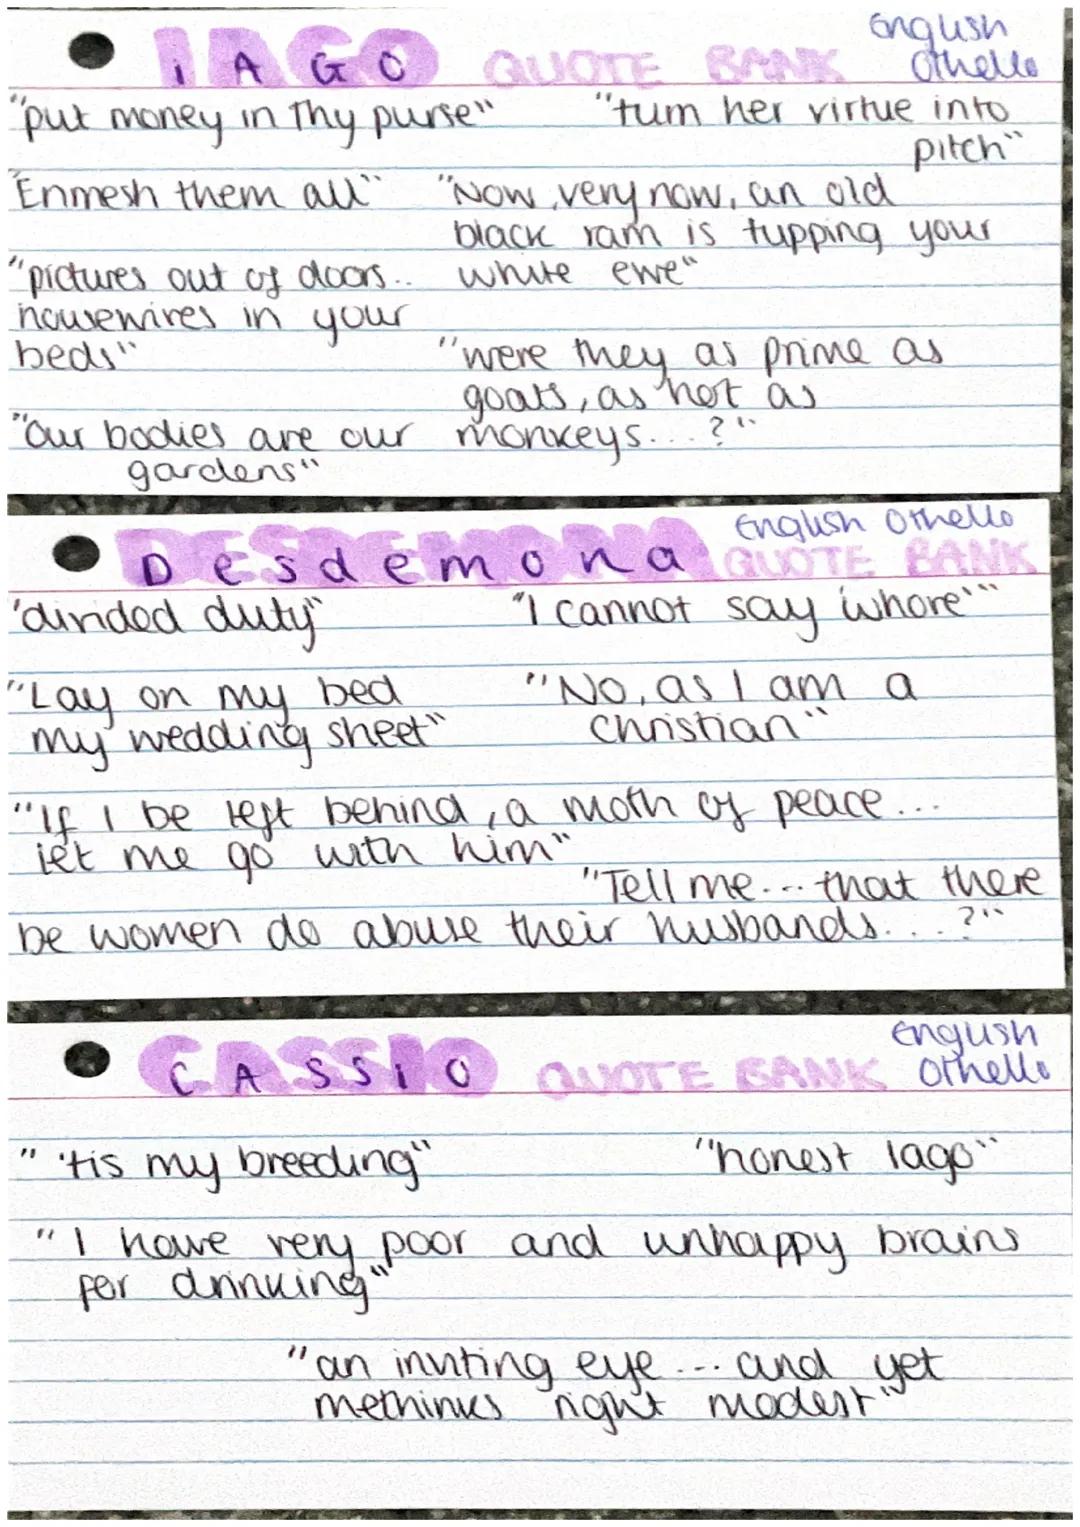 IAGO QUOTE BANK English Othello
"put money in thy purse"
"turn her virtue into pitch"
"Enmesh them all"
"Now, very now, an old
black ram is tupping your
white ewe"
"pictures out of doors..
housewives in your
beds"
"were they as prime as
goats, as hot as
monkeys...?"
"Our bodies are our
gardens"
Desdemona English Othello
QUOTE BANK
'divided duty"
"I cannot say 'whore'"
"Lay on my bed
my wedding sheet"
"No, as I am a
christian"
"If I be left behind, a moth of peace...
let me go with him"
"Tell me... that there
be women do abuse their husbands...?"
CASSIO QUOTE BANK English Othello
" 'tis my breeding"
"honest Iago"
"I have very poor and unhappy brains
for drinking"
"an inviting eye... and yet
methinks right modest"